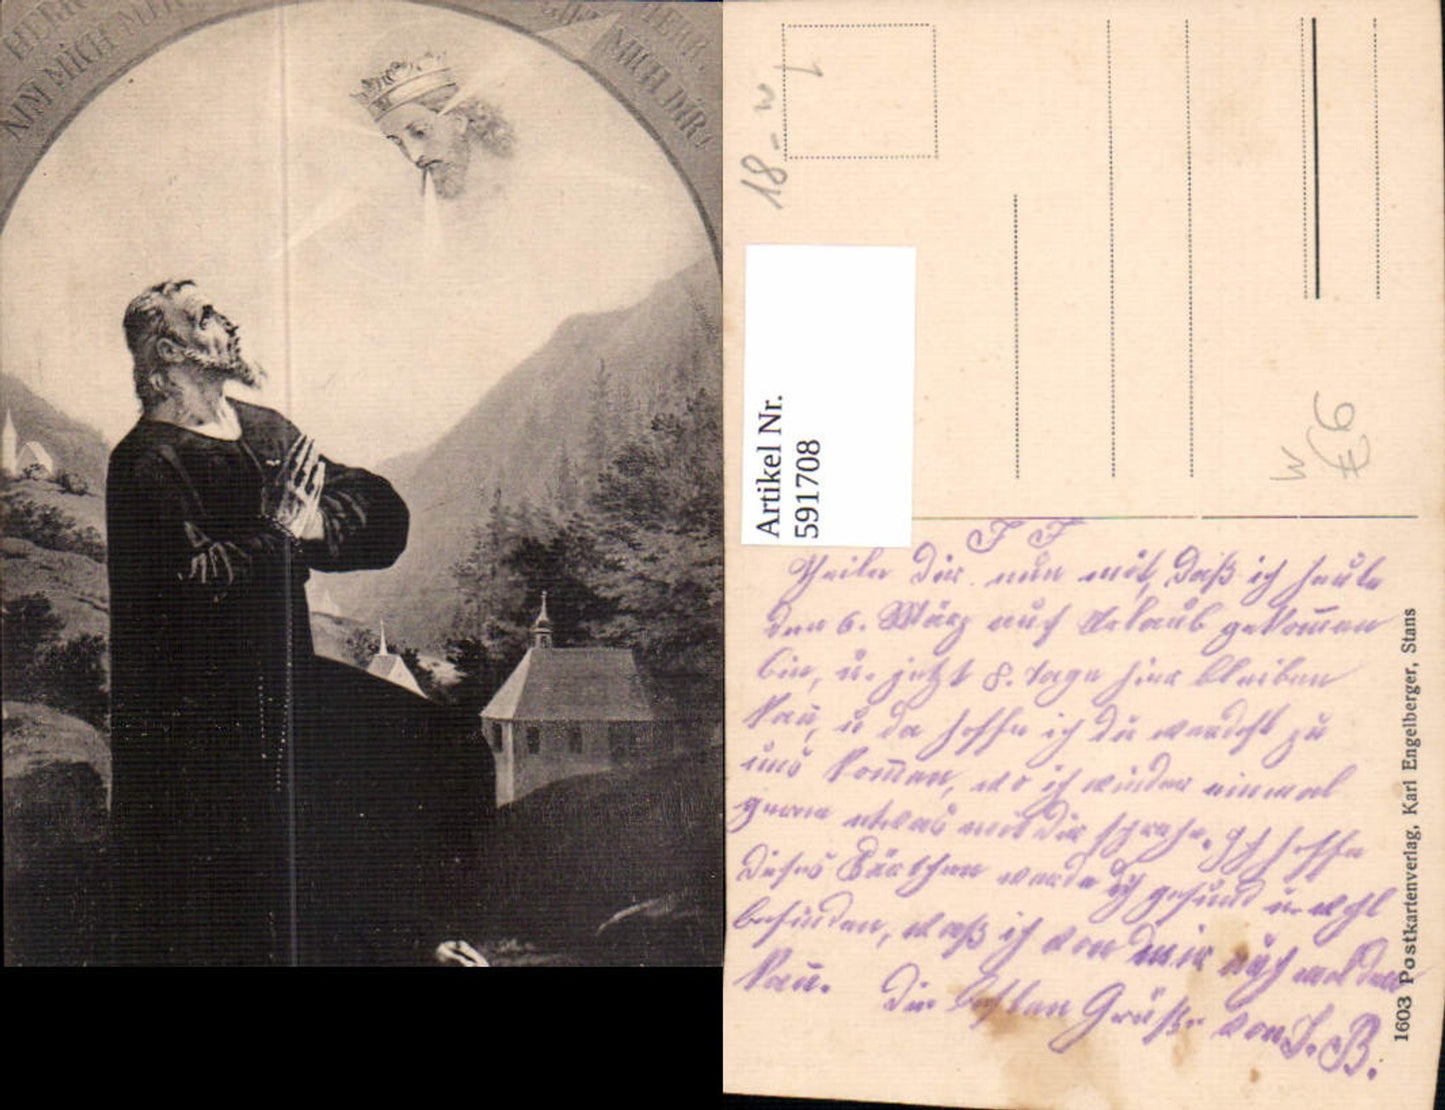 HERR
NIM MICH MIR
GIEB
MICH DIR!
18 = w 1
Artikel Nr.
591708
w
£6
J F
Theile Dir nun mit, Daß ich heute
den 6. März auf Urlaub gekommen
bin, u. jetzt 8. tage hier bleiben
kan, u da hoffe ich Du werdest zu
uns kommen, wo ich wieder einmal
gerne etwas mit Dir spreche. Ich hoffe
dieses Kärtchen werde Dich gesund u. wohl
befinden, waß ich von mir auch melden
kan. Die besten Grüße von J. B.
1603 Postkartenverlag, Karl Engelberger, Stans